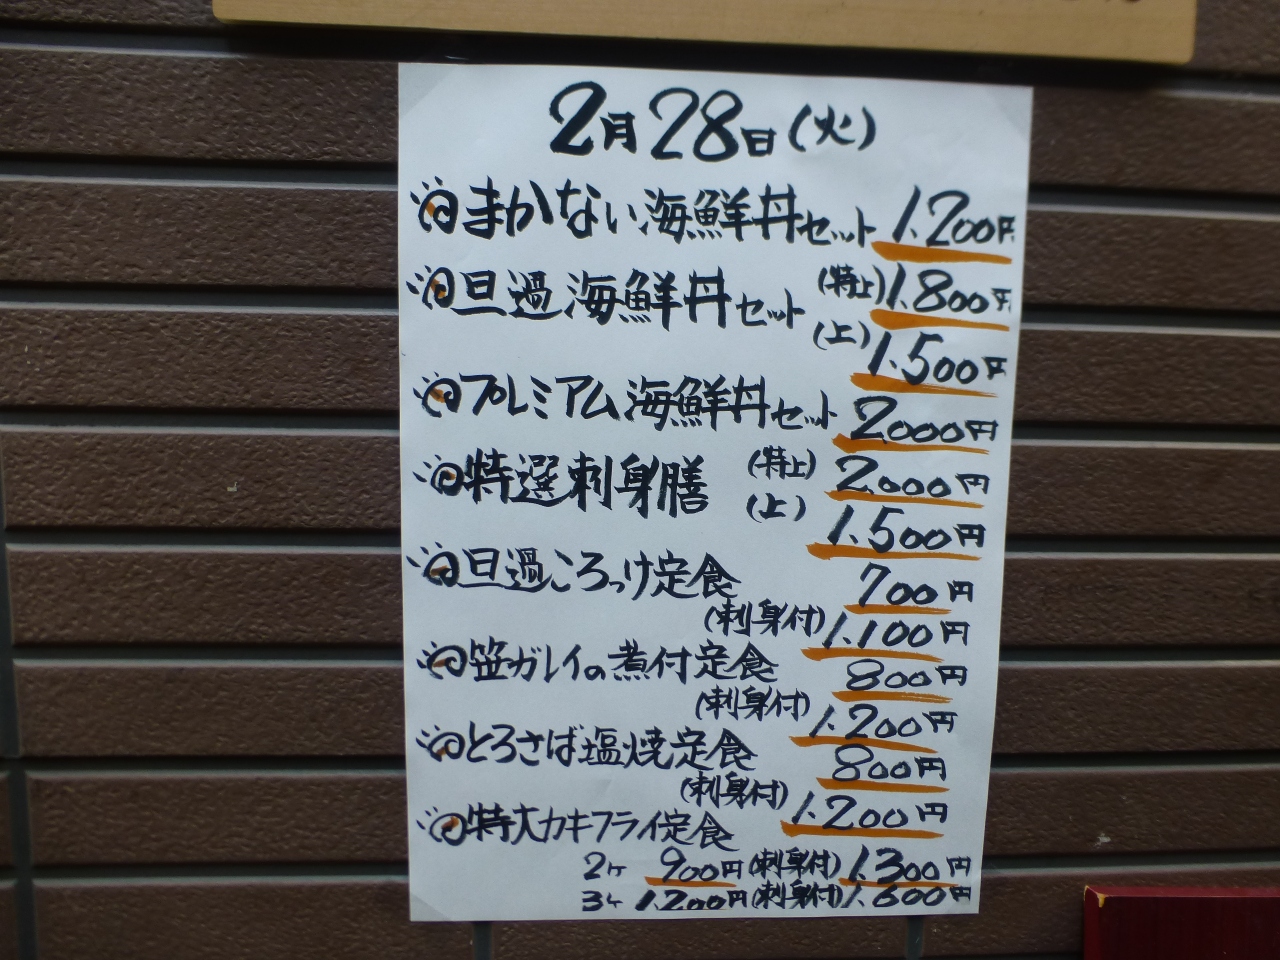 2月28日(火)
まかない海鮮丼セット 1.200円
旦過海鮮丼セット (特上) 1.800円
(上) 1.500円
プレミアム海鮮丼セット 2000円
特選刺身膳 (特上) 2.000円
(上) 1.500円
旦過ころっけ定食 700円
(刺身付) 1.100円
笹ガレイの煮付定食 800円
(刺身付) 1.200円
とろさば塩焼定食 800円
(刺身付) 1.200円
特大カキフライ定食
2ケ 900円 (刺身付) 1.300円
3ケ 1.200円 (刺身付) 1.600円